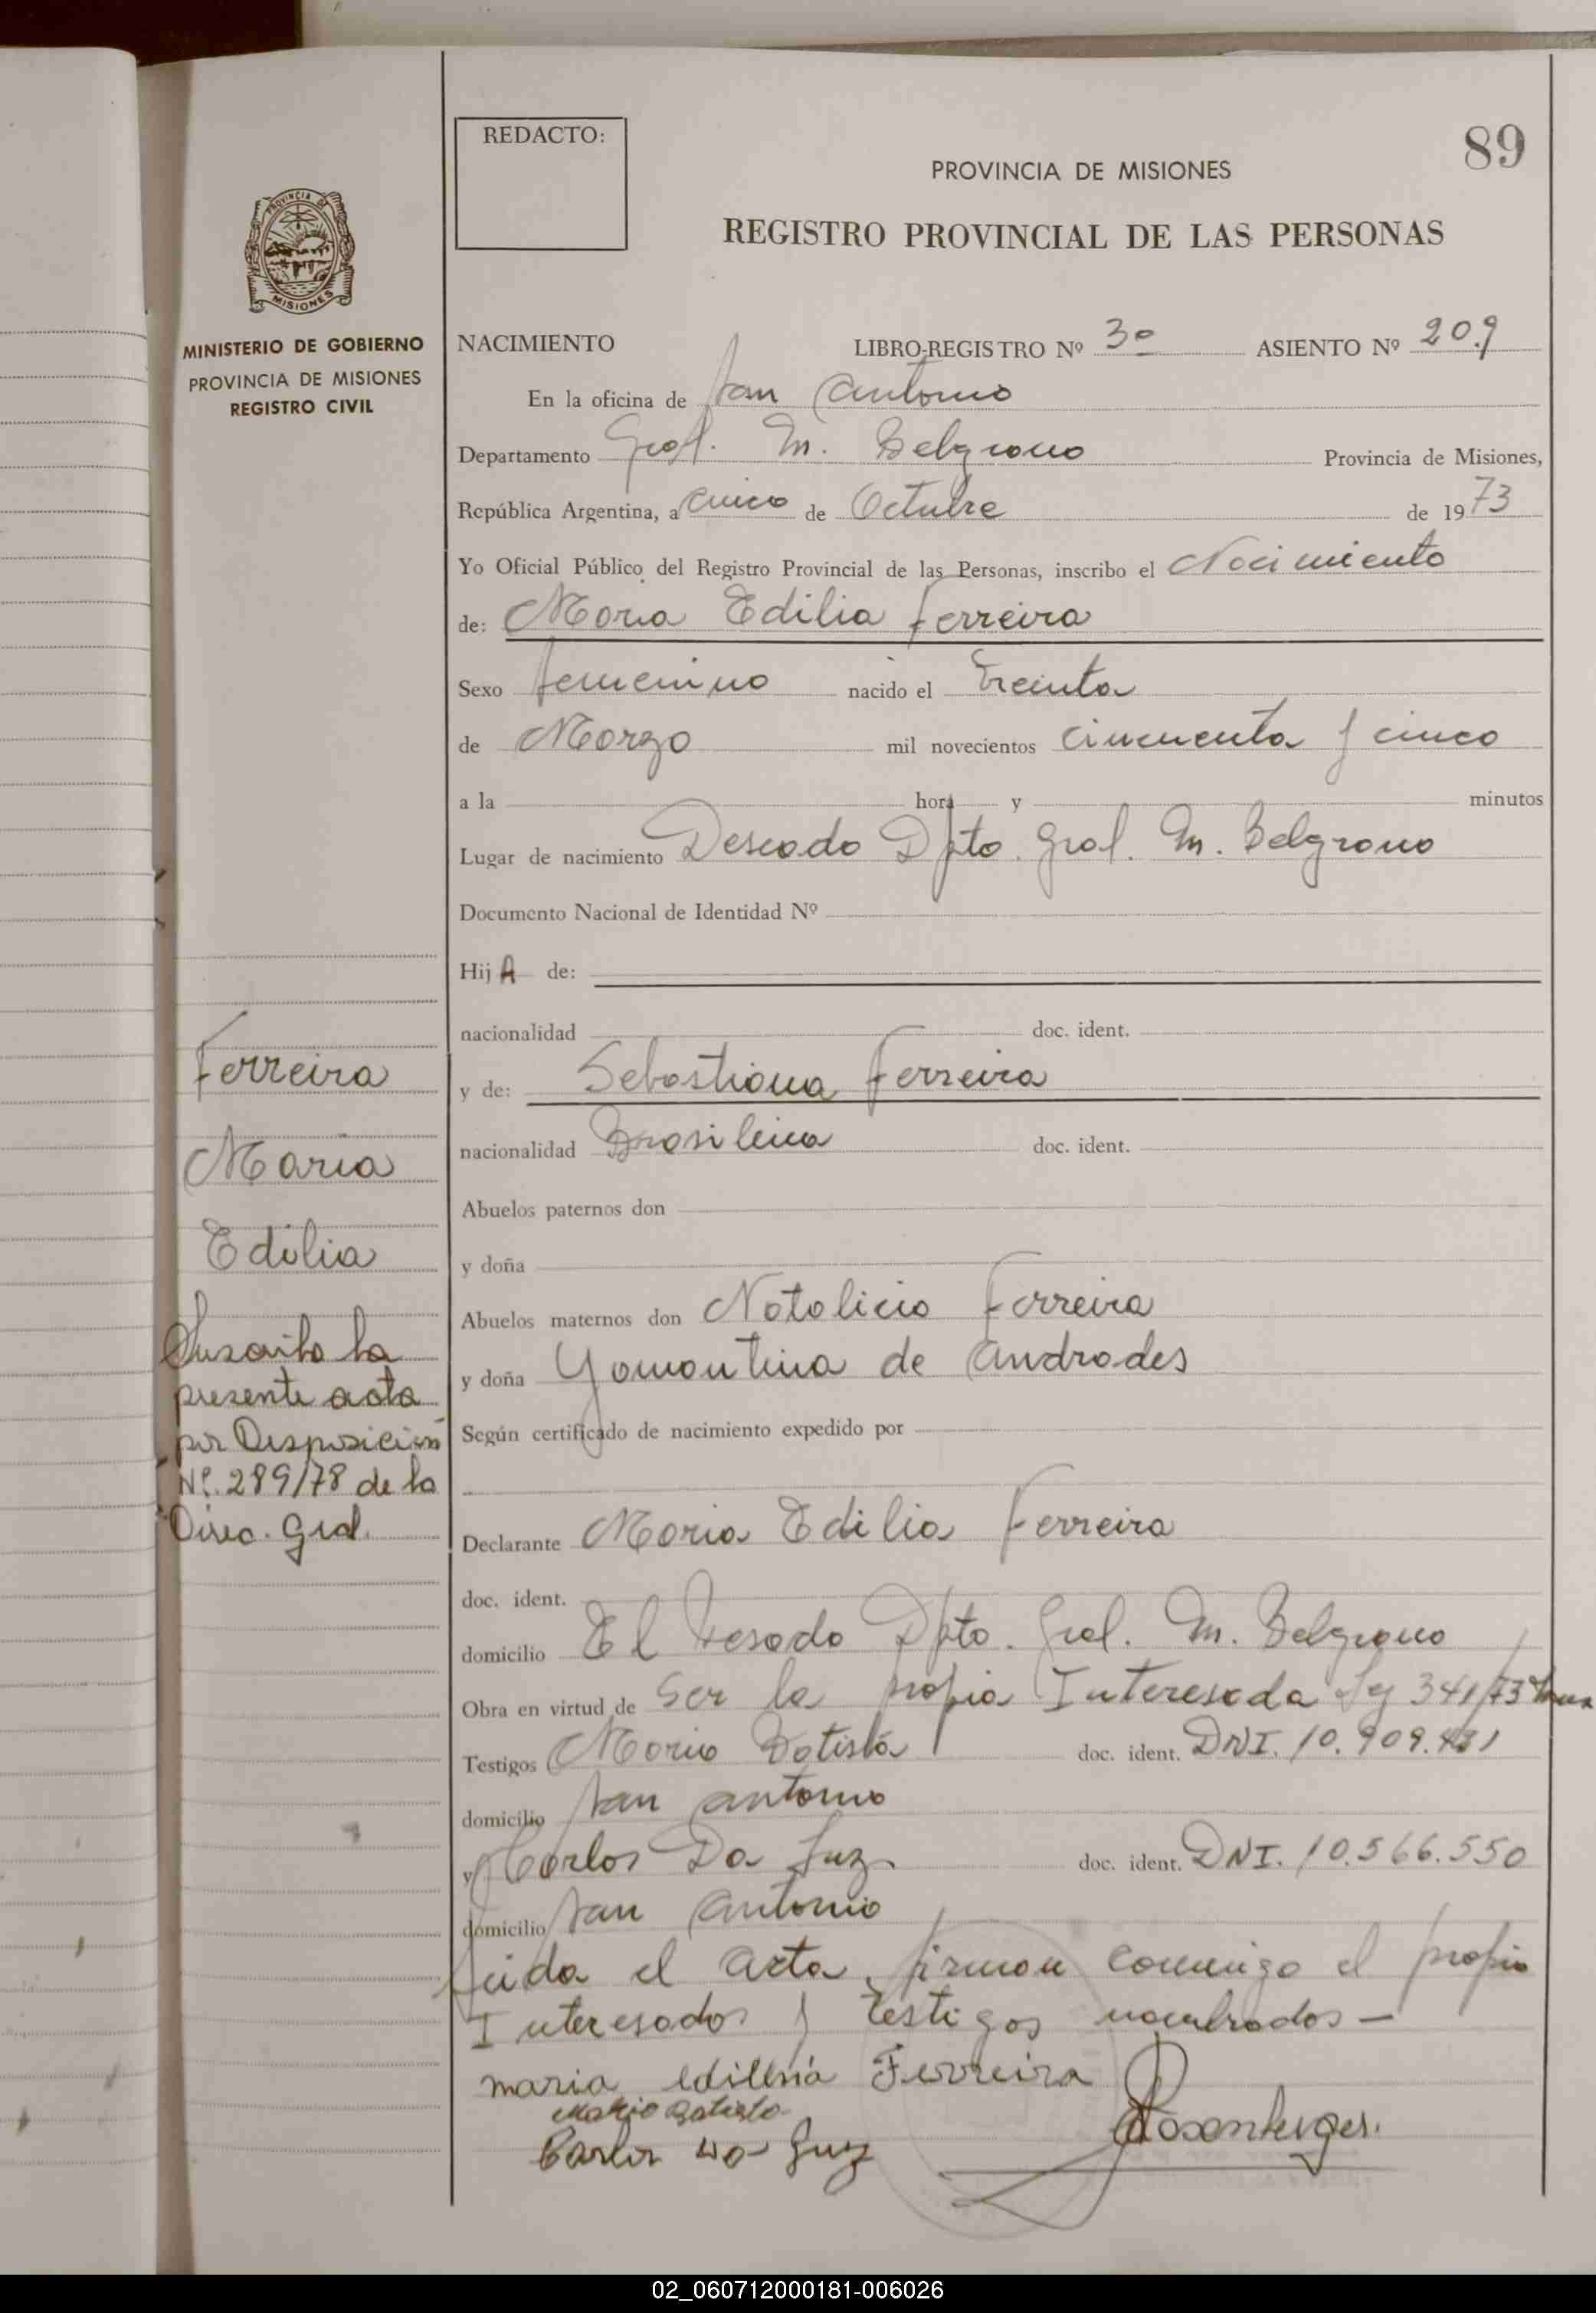 REDACTO:
89
PROVINCIA DE MISIONES
REGISTRO PROVINCIAL DE LAS PERSONAS
PROVINCIA DE
MISIONES
MINISTERIO DE GOBIERNO
PROVINCIA DE MISIONES
REGISTRO CIVIL
NACIMIENTO LIBRO-REGISTRO Nº 3º ASIENTO Nº 209
En la oficina de San Antonio
Departamento Gral. M. Belgrano Provincia de Misiones,
República Argentina, a cinco de Octubre de 1973
Yo Oficial Público del Registro Provincial de las Personas, inscribo el Nacimiento
de: Maria Edilia Ferreira
Sexo femenino nacido el Treinta
de Marzo mil novecientos cincuenta y cinco
a la hora y minutos
Lugar de nacimiento Deseado Dpto. Gral. M. Belgrano
Documento Nacional de Identidad Nº
Hij A de:
nacionalidad doc. ident.
y de: Sebastiana Ferreira
nacionalidad Brasileña doc. ident.
Abuelos paternos don
y doña
Abuelos maternos don Natalicio Ferreira
y doña Yomontina de Andrades
Según certificado de nacimiento expedido por
Declarante Maria Edilia Ferreira
doc. ident.
domicilio El Desado Dpto. Gral. M. Belgrano
Obra en virtud de Ser la propia Interesada Ley 341/73
Testigos Mario Batista doc. ident. DNI. 10.909.431
domicilio San Antonio
y Carlos Da Luz doc. ident. DNI. 10.566.550
domicilio San Antonio
Leida el acta, firman conmigo el propio
Interesados y testigos nombrados —
maria edilenia Ferreira
Mario Batista
Carlos da Luz
Ferreira
Maria
Edilia
Inscrito la
presente acta
por Disposición
Nº. 289/78 de la
Direc. Gral.
02_060712000181-006026